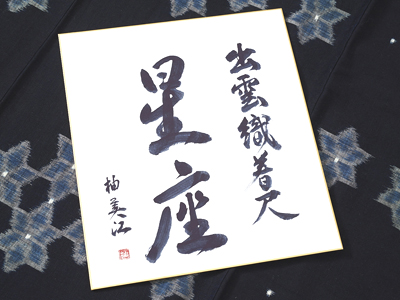 出雲織着尺
星座
柚美江